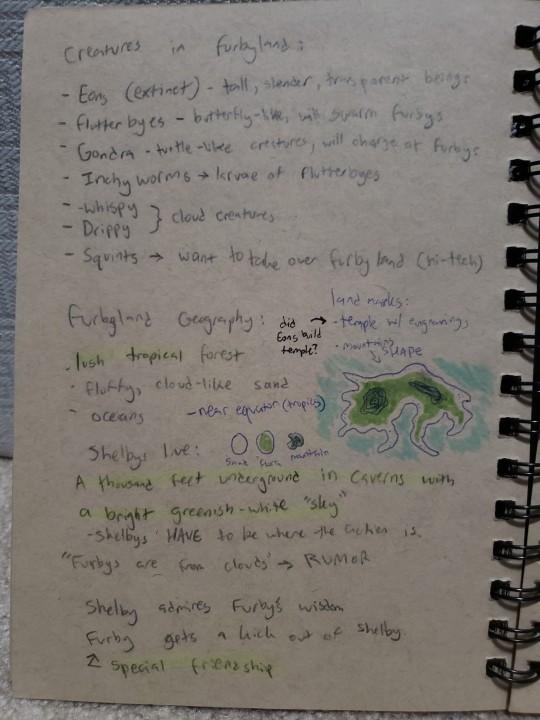 Creatures in Furbyland:
- Eons (extinct) - tall, slender, transparent beings
- Flutterbyes - butterfly-like, will swarm furbys
- Gondra - turtle-like creatures, will charge at Furbys
- Inchy worms → larvae of flutterbyes
- Whispy
- Drippy } cloud creatures
- Squints → want to take over furbyland (hi-tech)
Furbyland Geography:
- lush tropical forest
- fluffy, cloud-like sand
- oceans - near equator (tropics)
did Eons build temple? →
land marks:
- temple w/ engravings
- mountain?
↓ SHAPE
sand flora mountain
Shelbys live:
A thousand feet underground in caverns with
a bright greenish-white "sky"
- Shelbys HAVE to be where the action is.
"Furbys are from clouds" → RUMOR
Shelby admires Furby's wisdom
Furby gets a kick out of shelby.
↑ special friendship